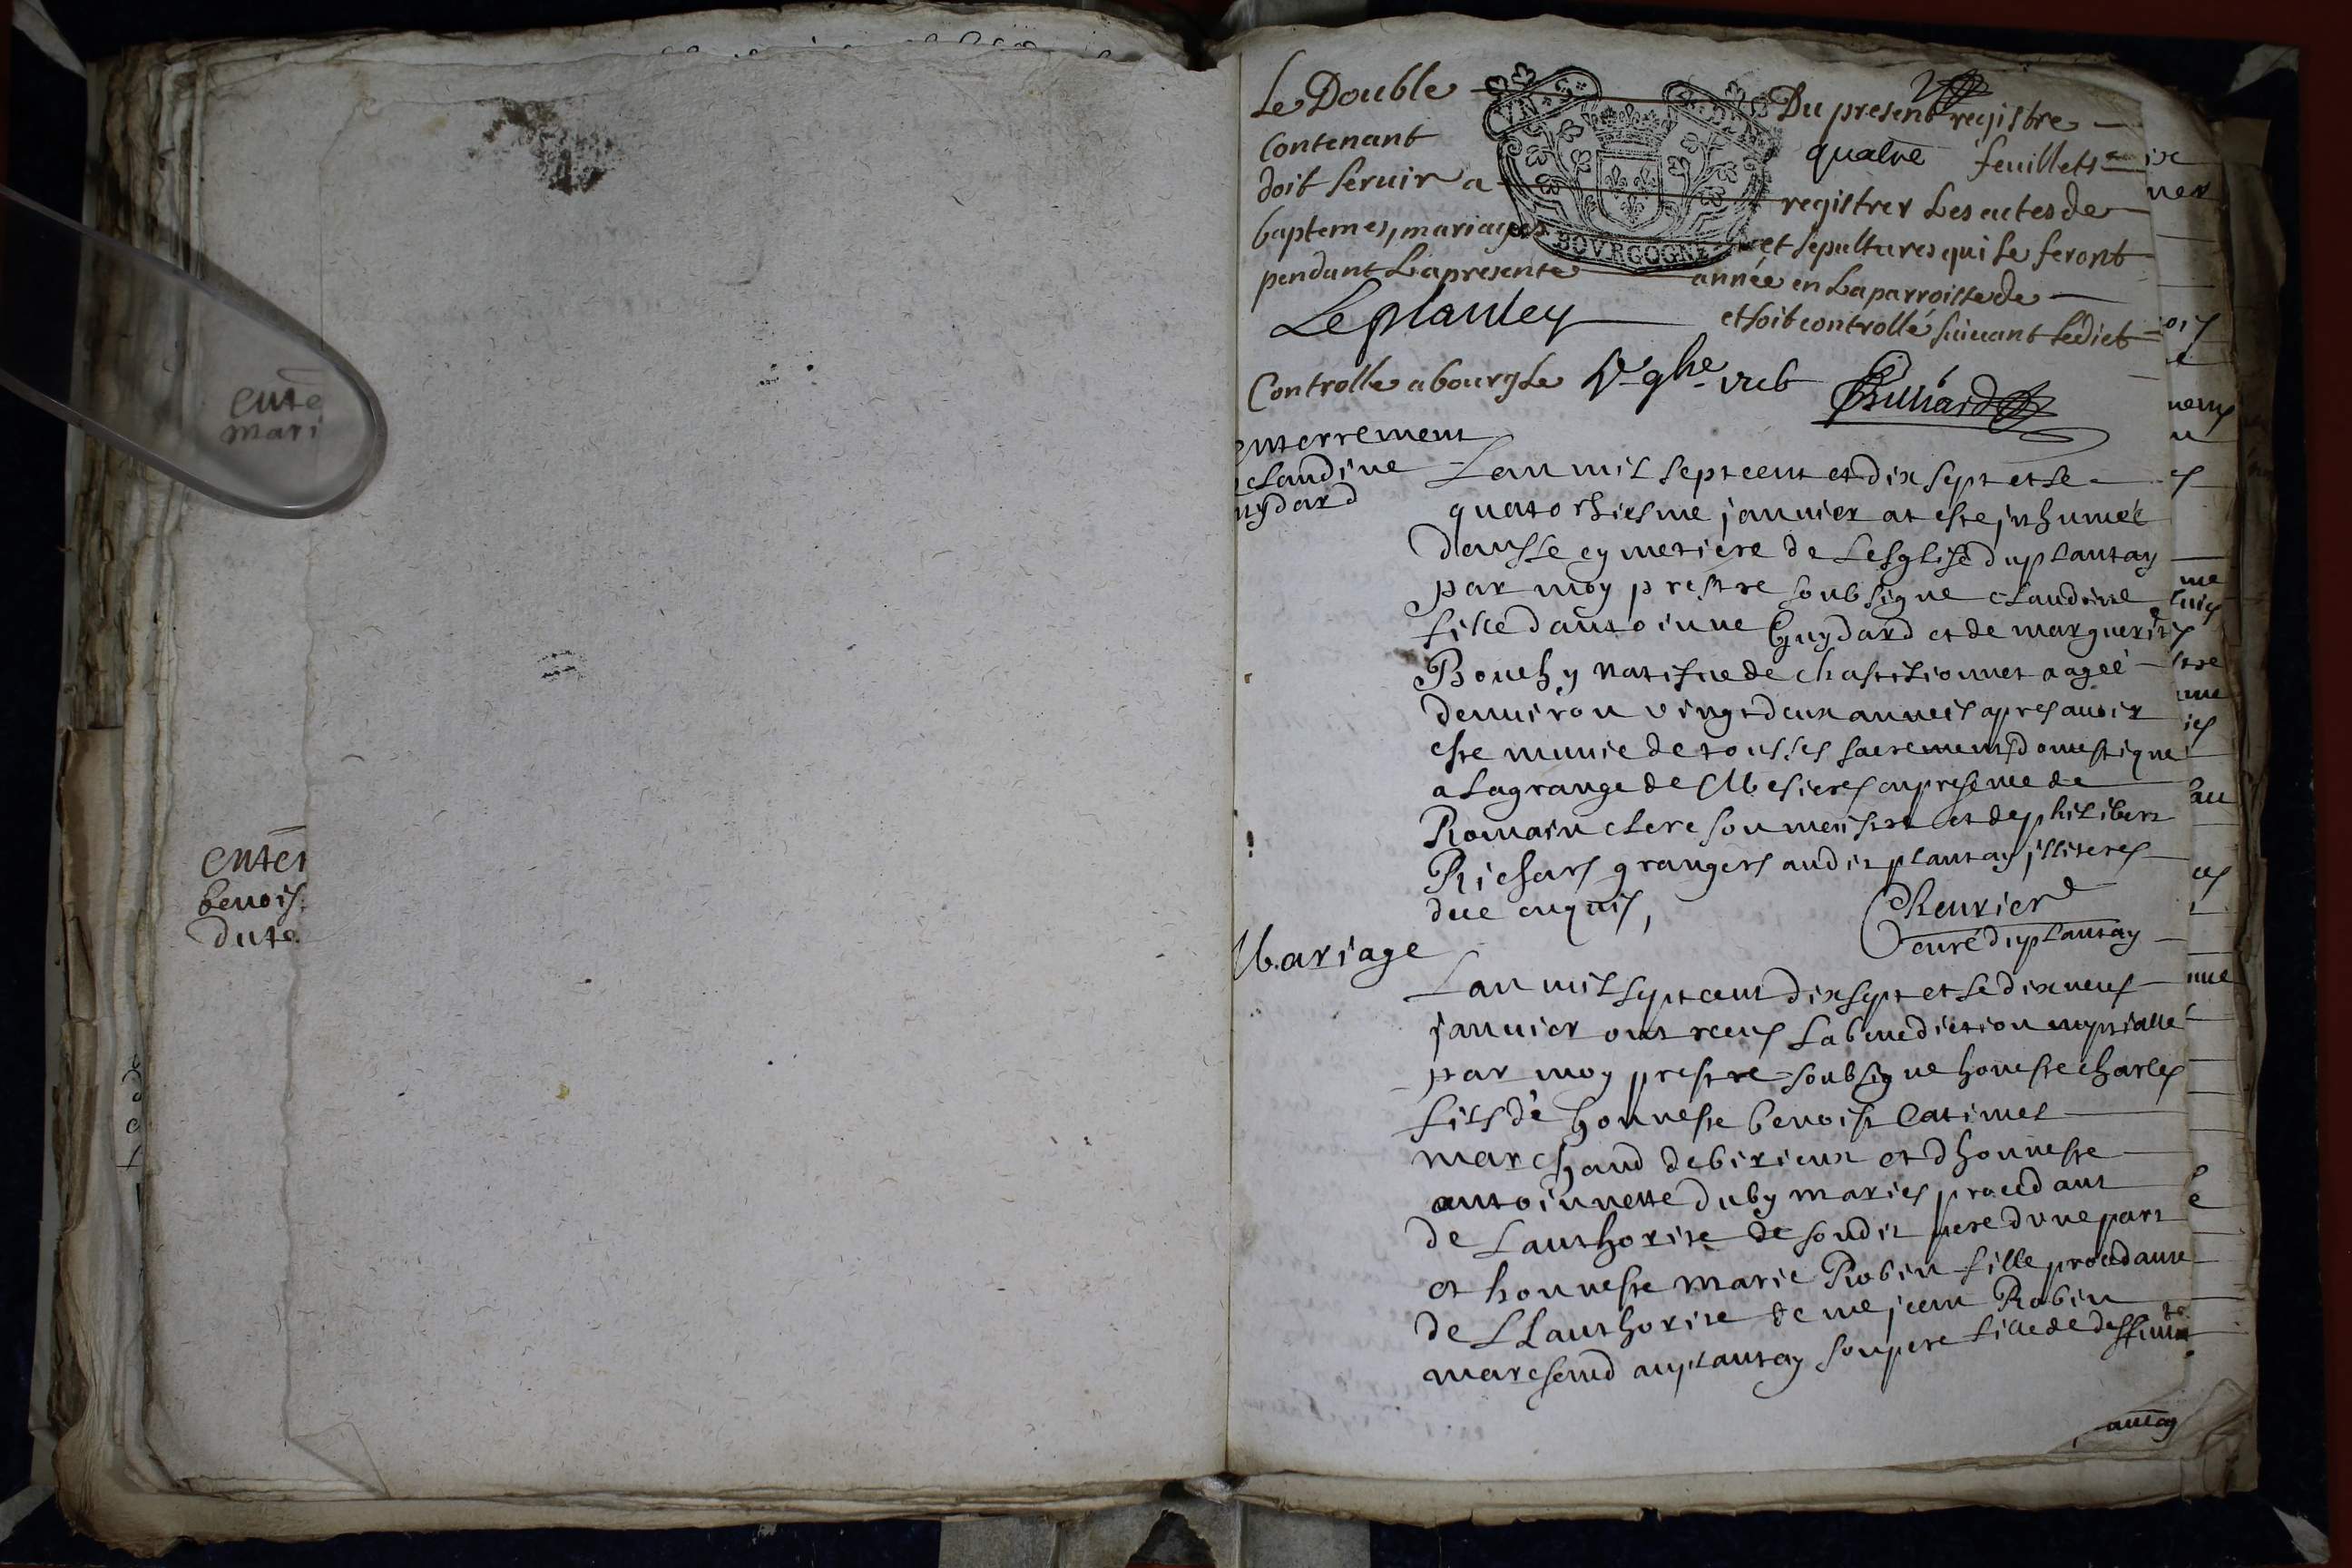 ente
mari
enter
benois
dute
Le Double Du present registre
Contenant quatre feuillets
doit servir a registrer Les actes de
baptemes, mariages et sepultures qui se feront
pendant La presente année en La parroisse de
Le plantey et soit controllé suivant Ledict
VN S
BOVRGOGNE
Controlle a bourg Le
enterrement
claudine
uydard
Lan mil sept cent et dix sept et le
quatorhiesme janvier at este inhumée
dans le cymetiere de Lesglise du plantay
par moy prestre soubsigne claudine
fille dantoinne Guydard et de marguerite
Bouchy natifue de chastilionnet aagée
denuiron vingt deux annees apres auoir
este munie de tous les sacrements domestique
a La grange de Mesieres en presence de
Romain clerc son maistre et de philibert
Richart grangers audit plantay illiteres
due enquis,
Cheurier
curé du plantay
Mariage
Lan mil sept cent dix sept et le dix neuf
janvier ont receus La benediction nuptialle
par moy prestre soubsigne honeste charles
fils de honneste benoist Catimel
marchand de birieux et dhonneste
antoinnette duby maries procedant
de Lauthorite de sondit pere dune part
et honneste marie Robin fille procedante
de LLauthorite de me jean Robin
marchand au plantay son pere fille de deffunte